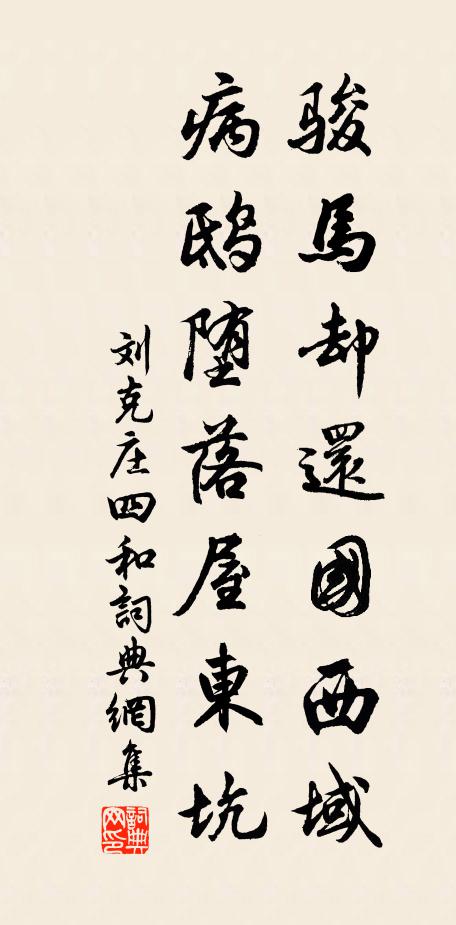 骏馬却還國西域
病鴟堕落屋東坑
刘克庄四和詞典網集
詞典网印